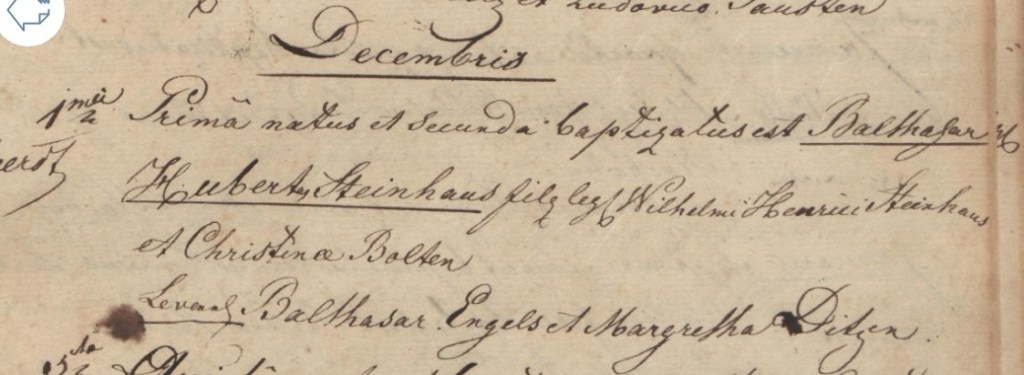 et Ludovico Fausten
Decembris
Primâ natus et Secunda baptizatus est Balthasar et
Huberty Steinhaus filg leg Wilhelmi Henrici Steinhaus
et Christinæ Bolten
Levantg Balthasar Engels et Margretha Ditzen.